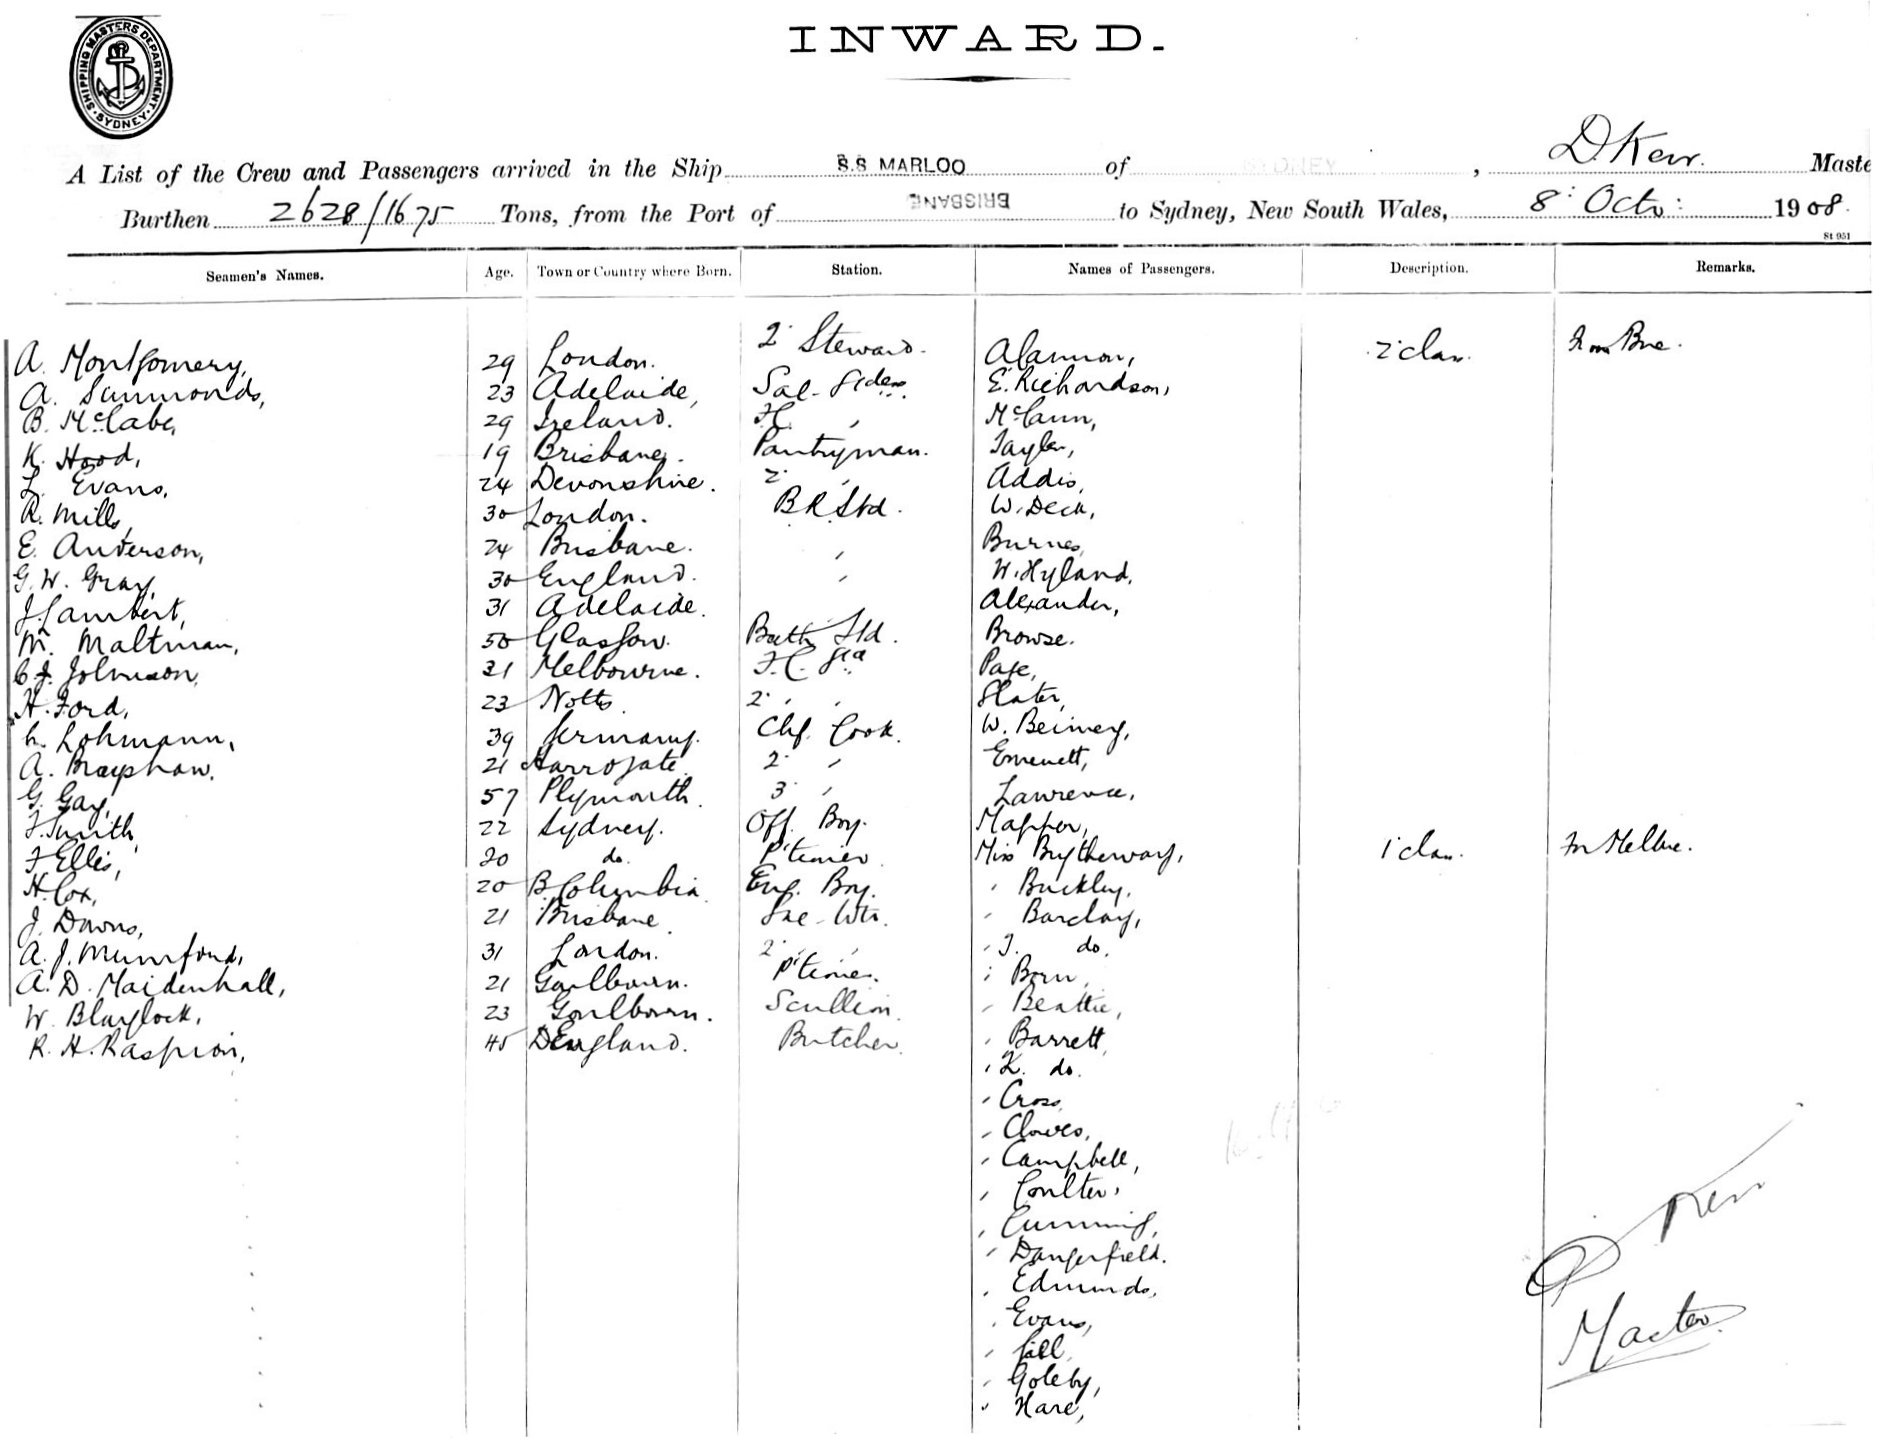 INWARD.
SHIPPING MASTERS DEPARTMENT. SYDNEY.
A List of the Crew and Passengers arrived in the Ship S.S MARLOO of SYDNEY, D. Kerr. Maste
Burthen 2628/1675 Tons, from the Port of BRISBANE to Sydney, New South Wales, 8: Octr: 1908.
St 951
Seamen's Names. Age. Town or Country where Born. Station. Names of Passengers. Description. Remarks.
A. Montgomery, 29 London. 2' Steward. 2' clas. From Bne.
A. Simmonds, 23 Adelaide, Sal. E. Richardson,
B. McCabe, 29 Ireland. McCann,
K. Hood, 19 Brisbane. Pantryman. Taylor,
L. Evans, 24 Devonshire. 2' , Addis,
R. Mills, 30 London. B.R. Std. W. Deck,
E. Anderson, 24 Brisbane. , Burnes,
G. W. Gray, 30 England. , W. Hyland,
J. Lambert, 31 Adelaide. Alexander,
M. Maltman, 50 Glasgow. Bath Std. Browse.
C. J. Johnson, 21 Melbourne. F.C. Page,
H. Ford, 23 Notts. 2' , , Slater,
Lohmann, 39 Germany. Chf. Cook.
A. Brayshaw. 21 Harrogate. 2' , Emmett,
G. Gay, 57 Plymouth. 3' , Lawrence,
F. Smith, 22 Sydney. Off. Boy.
F. Ellis, 20 do. P'timer. Miss Bytheway, 1' clas. Fm Melbne.
H. Cox, 20 B. Columbia. Eng. Boy. , Buckley,
J. Downs, 21 Brisbane. , Barclay,
A. J. Mumford, 31 London. 2' , , J. do.
A. D. Maidenhall, 21 Goulburn. P'timer. , Born,
W. Blaylock, 23 Goulburn. Scullion. , Beattie,
R. H. Raspion, 45 England. Butcher. , Barrett,
, K. do.
, Cross,
, Clowes,
, Campbell,
, Coulter,
, Cumming,
, Dangerfield.
, Edmunds,
, Evans,
, Gill,
, Goleby,
, Hare,
D Kerr
Master